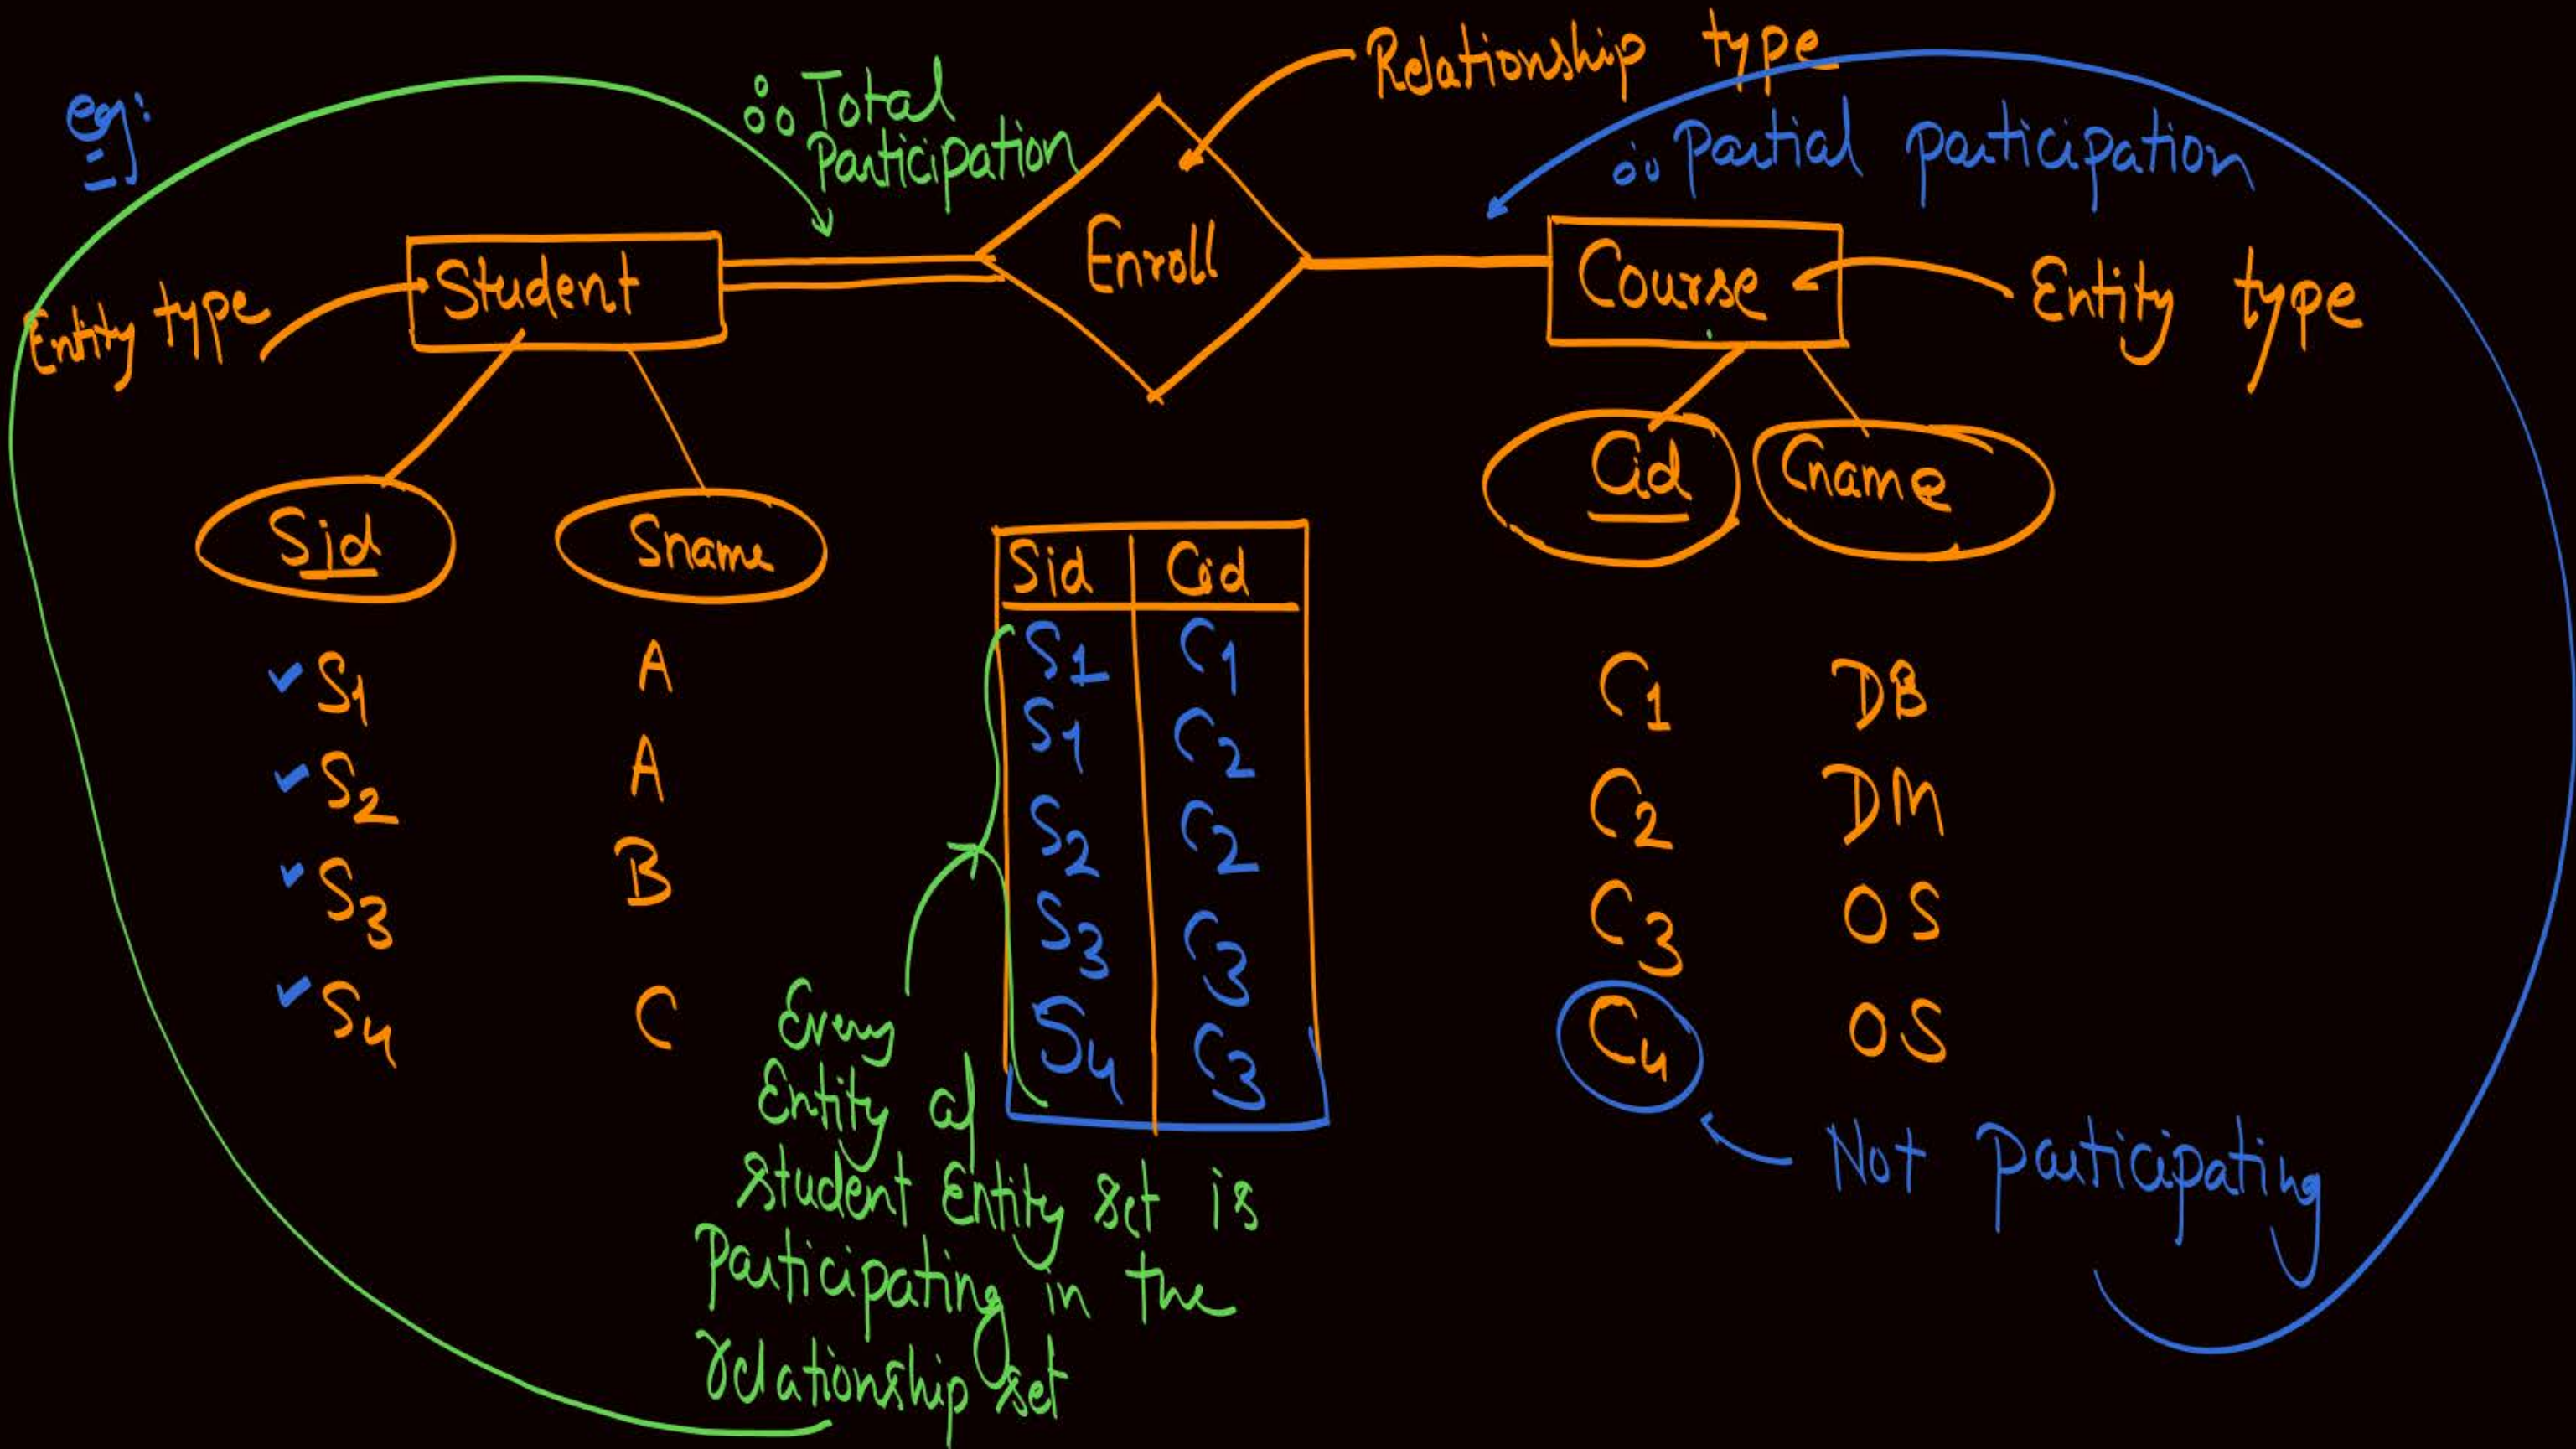 eg:
∴ Total
Participation
Relationship type
∴ Partial participation
Entity type
Student
Enroll
Course
Entity type
Sid
Sname
Cid
Cname
S1 A
S2 A
S3 B
S4 C
Sid Cid
S1 C1
S1 C2
S2 C2
S3 C3
S4 C3
C1 DB
C2 DM
C3 OS
C4 OS
Every
Entity of
Student Entity set is
Participating in the
relationship set
Not Participating